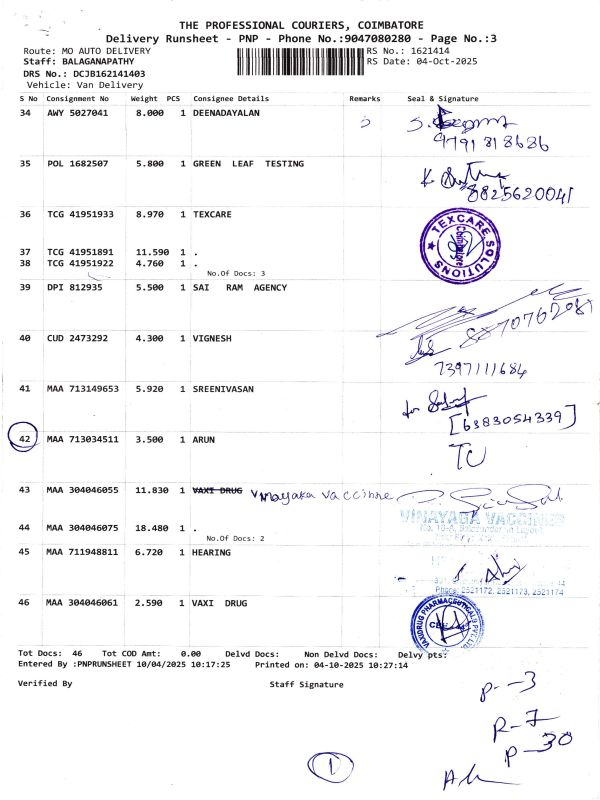 THE PROFESSIONAL COURIERS, COIMBATORE
Delivery Runsheet - PNP - Phone No.:9047080280 - Page No.:3
Route: MO AUTO DELIVERY RS No.: 1621414
Staff: BALAGANAPATHY RS Date: 04-Oct-2025
DRS No.: DCJB162141403
Vehicle: Van Delivery
S No Consignment No Weight PCS Consignee Details Remarks Seal & Signature
34 AWY 5027041 8.000 1 DEENADAYALAN
9791818686
35 POL 1682507 5.800 1 GREEN LEAF TESTING
8825620041
36 TCG 41951933 8.970 1 TEXCARE
TEXCARE SOLUTIONS
Coimbatore
37 TCG 41951891 11.590 1 .
38 TCG 41951922 4.760 1 .
No.Of Docs: 3
39 DPI 812935 5.500 1 SAI RAM AGENCY
8870762081
40 CUD 2473292 4.300 1 VIGNESH
7397111684
41 MAA 713149653 5.920 1 SREENIVASAN
[6383054339]
42 MAA 713034511 3.500 1 ARUN
43 MAA 304046055 11.830 1 VAXI DRUG Vinayaka Vaccinne
VINAYAGA VACCINES
44 MAA 304046075 18.480 1 .
No.Of Docs: 2
45 MAA 711948811 6.720 1 HEARING
Phone: 2521172, 2521173, 2521174
46 MAA 304046061 2.590 1 VAXI DRUG
VAXIDRUG PHARMACEUTICALS PVT. LTD
Tot Docs: 46 Tot COD Amt: 0.00 Delvd Docs: Non Delvd Docs: Delvy pts:
Entered By :PNPRUNSHEET 10/04/2025 10:17:25 Printed on: 04-10-2025 10:27:14
Verified By Staff Signature
P--3
R-7
P-30
1